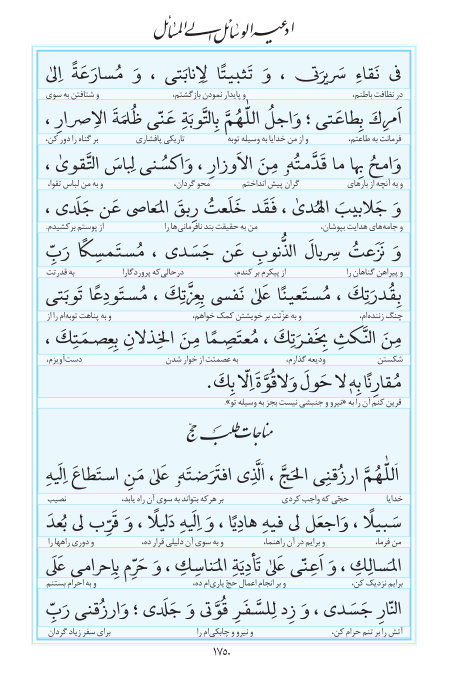 ادعیه الوسائل الی المسائل
فی نَقاءِ سَریرَتی ، وَ تَثبیتًا لِاِنابَتی ، وَ مُسارَعَةً اِلیٰ
در نظافت باطنم، و پایدار نمودن بازگشتم، و شتافتن به سوی
اَمرِكَ بِطاعَتی ؛ وَاجلُ اللّٰهُمَّ بِالتَّوبَةِ عَنّی ظُلمَةَ الاِصرارِ ،
فرمانت به طاعتم، و از من خدایا به وسیله توبه تاریکی پافشاری بر گناه را دور کن،
وَامحُ بِها ما قَدَّمتُهُ مِنَ الاَوزارِ ، وَاكسُنی لِباسَ التَّقویٰ ،
و به آنچه از بارهای گران پیش انداختم محو گردان، و به من لباس تقوا،
وَ جَلابیبَ الهُدیٰ ، فَقَد خَلَعتُ رِبقَ المَعاصی عَن جَلَدی ،
و جامه‌های هدایت بپوشان، من به حقیقت بند نافرمانی‌ها را از پوستم برکشیدم.
وَ نَزَعتُ سِربالَ الذُّنوبِ عَن جَسَدی ، مُستَمسِكًا رَبِّ
و پیراهن گناهان را از پیکرم بر کندم، در حالی‌که پروردگارا به قدرتت
بِقُدرَتِكَ ، مُستَعینًا عَلیٰ نَفسی بِعِزَّتِكَ ، مُستَودِعًا تَوبَتی
چنگ زننده‌ام، و به عزّتت بر خویشتن کمک خواهم، و به پناهت توبه‌ام را از
مِنَ النَّكثِ بِخَفرَتِكَ ، مُعتَصِمًا مِنَ الخِذلانِ بِعِصمَتِكَ ،
شکستن ودیعه گذارم، به عصمتت از خوار شدن دست‌آویزم،
مُقارِنًا بِهِ لا حَولَ وَلا قُوَّةَ اِلّا بِكَ.
قرین کنم آن را به «نیرو و جنبشی نیست بجز به وسیله تو».
مناجات طلب حج
اَللّٰهُمَّ ارزُقنِی الحَجَّ ، اَلَّذِی افتَرَضتَهُ عَلیٰ مَنِ استَطاعَ اِلَیهِ
خدایا حجّی که واجب کردی بر هر که بتواند به سوی آن راه یابد، نصیب
سَبیلًا ، وَاجعَل لی فیهِ هادِیًا ، وَ اِلَیهِ دَلیلًا ، وَ قَرِّب لی بُعدَ
من فرما، و برایم در آن راهنما، و به سوی آن دلیلی قرار ده، و دوری راهها را
المَسالِكِ ، وَ اَعِنّی عَلیٰ تَأدِیَةِ المَناسِكِ ، وَ حَرِّم بِاِحرامی عَلَی
برایم نزدیک کن، و بر انجام اعمال حجّ یاری‌ام ده، و به احرام بستنم
النّارِ جَسَدی ، وَ زِد لِلسَّفَرِ قُوَّتی وَ جَلَدی ؛ وَارزُقنی رَبِّ
آتش را بر تنم حرام کن، و نیرو و چابکی‌ام را برای سفر زیاد گردان
۱۷۵۰